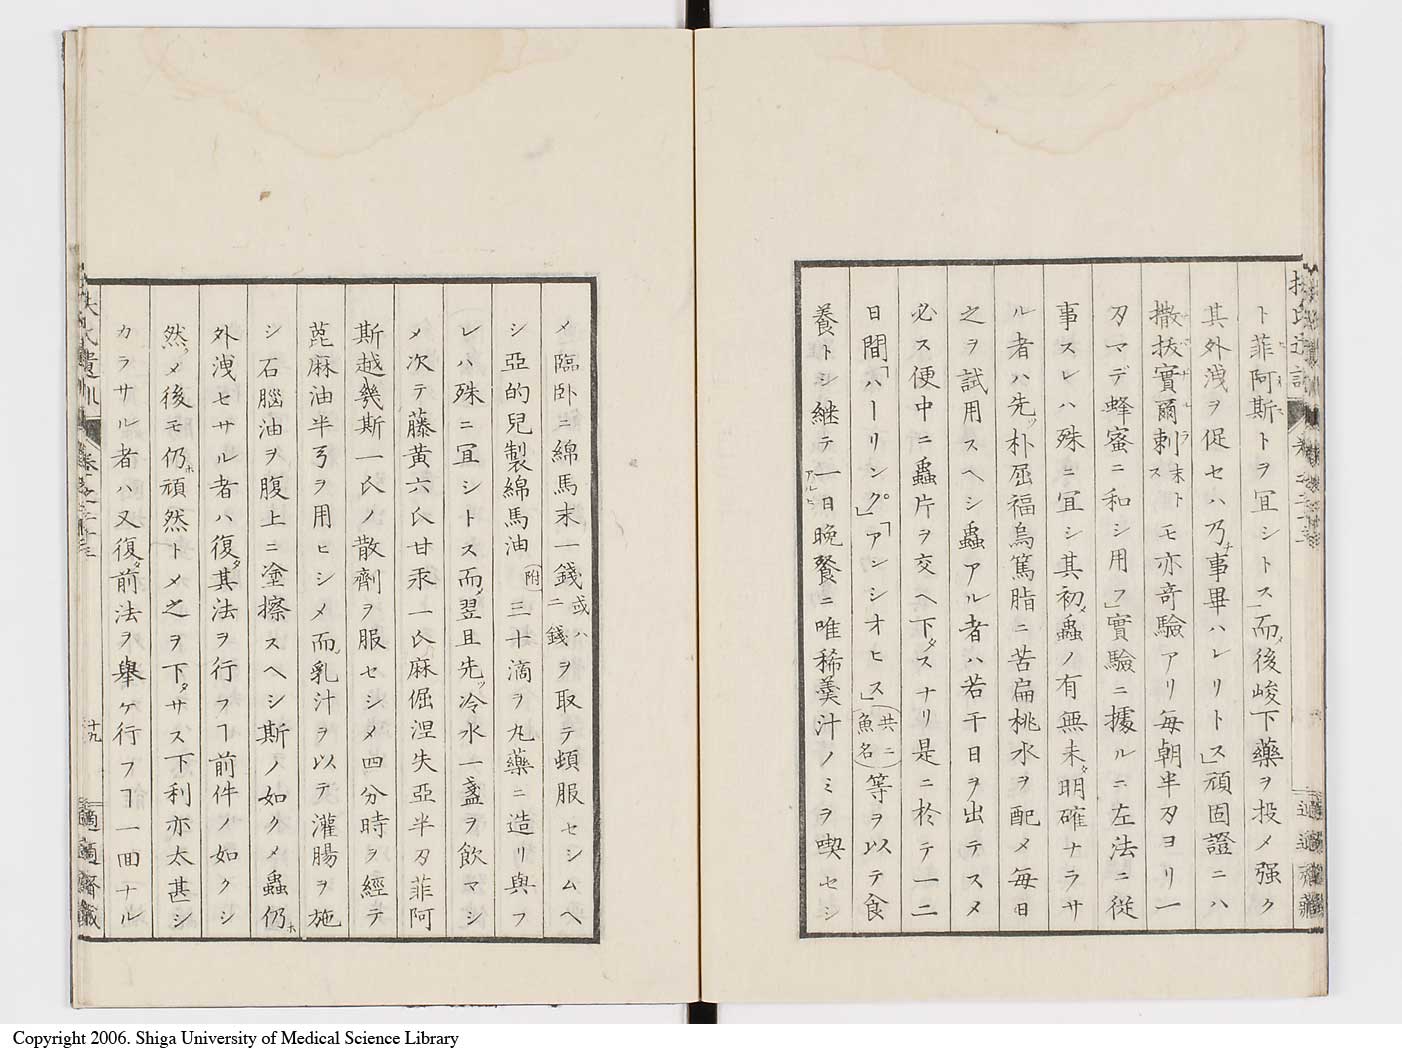 ト菲阿斯トヲ冝シトス」而後峻下藥ヲ投メ强ク
其外洩ヲ促セハ乃事畢ハレリトス」頑固證ニハ
撒抜實爾剌末トスモ亦竒驗アリ毎朝半刄ヨリ一
刄マデ蜂蜜ニ和シ用フ」實驗ニ據ルニ左法ニ従
事スレハ殊ニ冝シ其初蟲ノ有無未明確ナラサ
ル者ハ先ッ朴屈福烏篤脂ニ苦扁桃水ヲ配メ毎日
之ヲ試用スヘシ蟲アル者ハ若干日ヲ出テスメ
必ス便中ニ蟲片ヲ交ヘ下スナリ是ニ於テ一二
日間「ハーリング」「アンシオヒス」共ニ魚名等ヲ以テ食
養トシ継テ一日アルヒ晩餐ニ唯稀羹汁ノミヲ喫セシ
メ臨卧ニ綿馬末一錢或ハ二錢ヲ取テ頓服セシムヘ
シ亞的兒製綿馬油附三十滴ヲ丸藥ニ造リ與フ
レハ殊ニ冝シトス而翌且先ッ冷水一盞ヲ飲マシ
メ次テ藤黄六氏甘汞一氏麻倔涅失亞半刄菲阿
斯越幾斯一氏ノ散劑ヲ服セシメ四分時ヲ經テ
蓖麻油半弓ヲ用ヒシメ而乳汁ヲ以テ灌腸ヲ施
シ石腦油ヲ腹上ニ塗擦スヘシ斯ノ如クメ蟲仍ホ
外洩セサル者ハ復タ其法ヲ行フヿ前件ノ如クシ
然メ後モ仍ホ頑然トメ之ヲ下タサス下利亦太甚シ
カラサル者ハ又復タ前法ヲ舉ケ行フヿ一回ナル
扶氏遺訓
卷之二十三
十九
適適齋藏
Copyright 2006. Shiga University of Medical Science Library